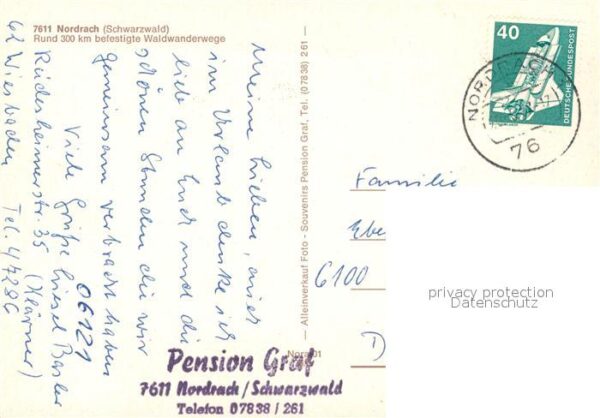 7611 Nordrach (Schwarzwald)
Rund 300 km befestigte Waldwanderwege
Meine Lieben, auch hier
im Urlaub denke ich
liebe an Euch und die
schönen Stunden die wir
gemeinsam verbracht haben
06121
Viele Grüße Liesel
Rüdesheimerstr. 35
62 Wiesbaden Tel.
— Alleinverkauf Foto - Souvenirs Pension Graf, Tel. (07838) 261 —
40
DEUTSCHE BUNDESPOST
NORDRACH
76
Familie
Ebe
6100
privacy protection
Datenschutz
Pension Graf
7611 Nordrach / Schwarzwald
Telefon 07838 / 261